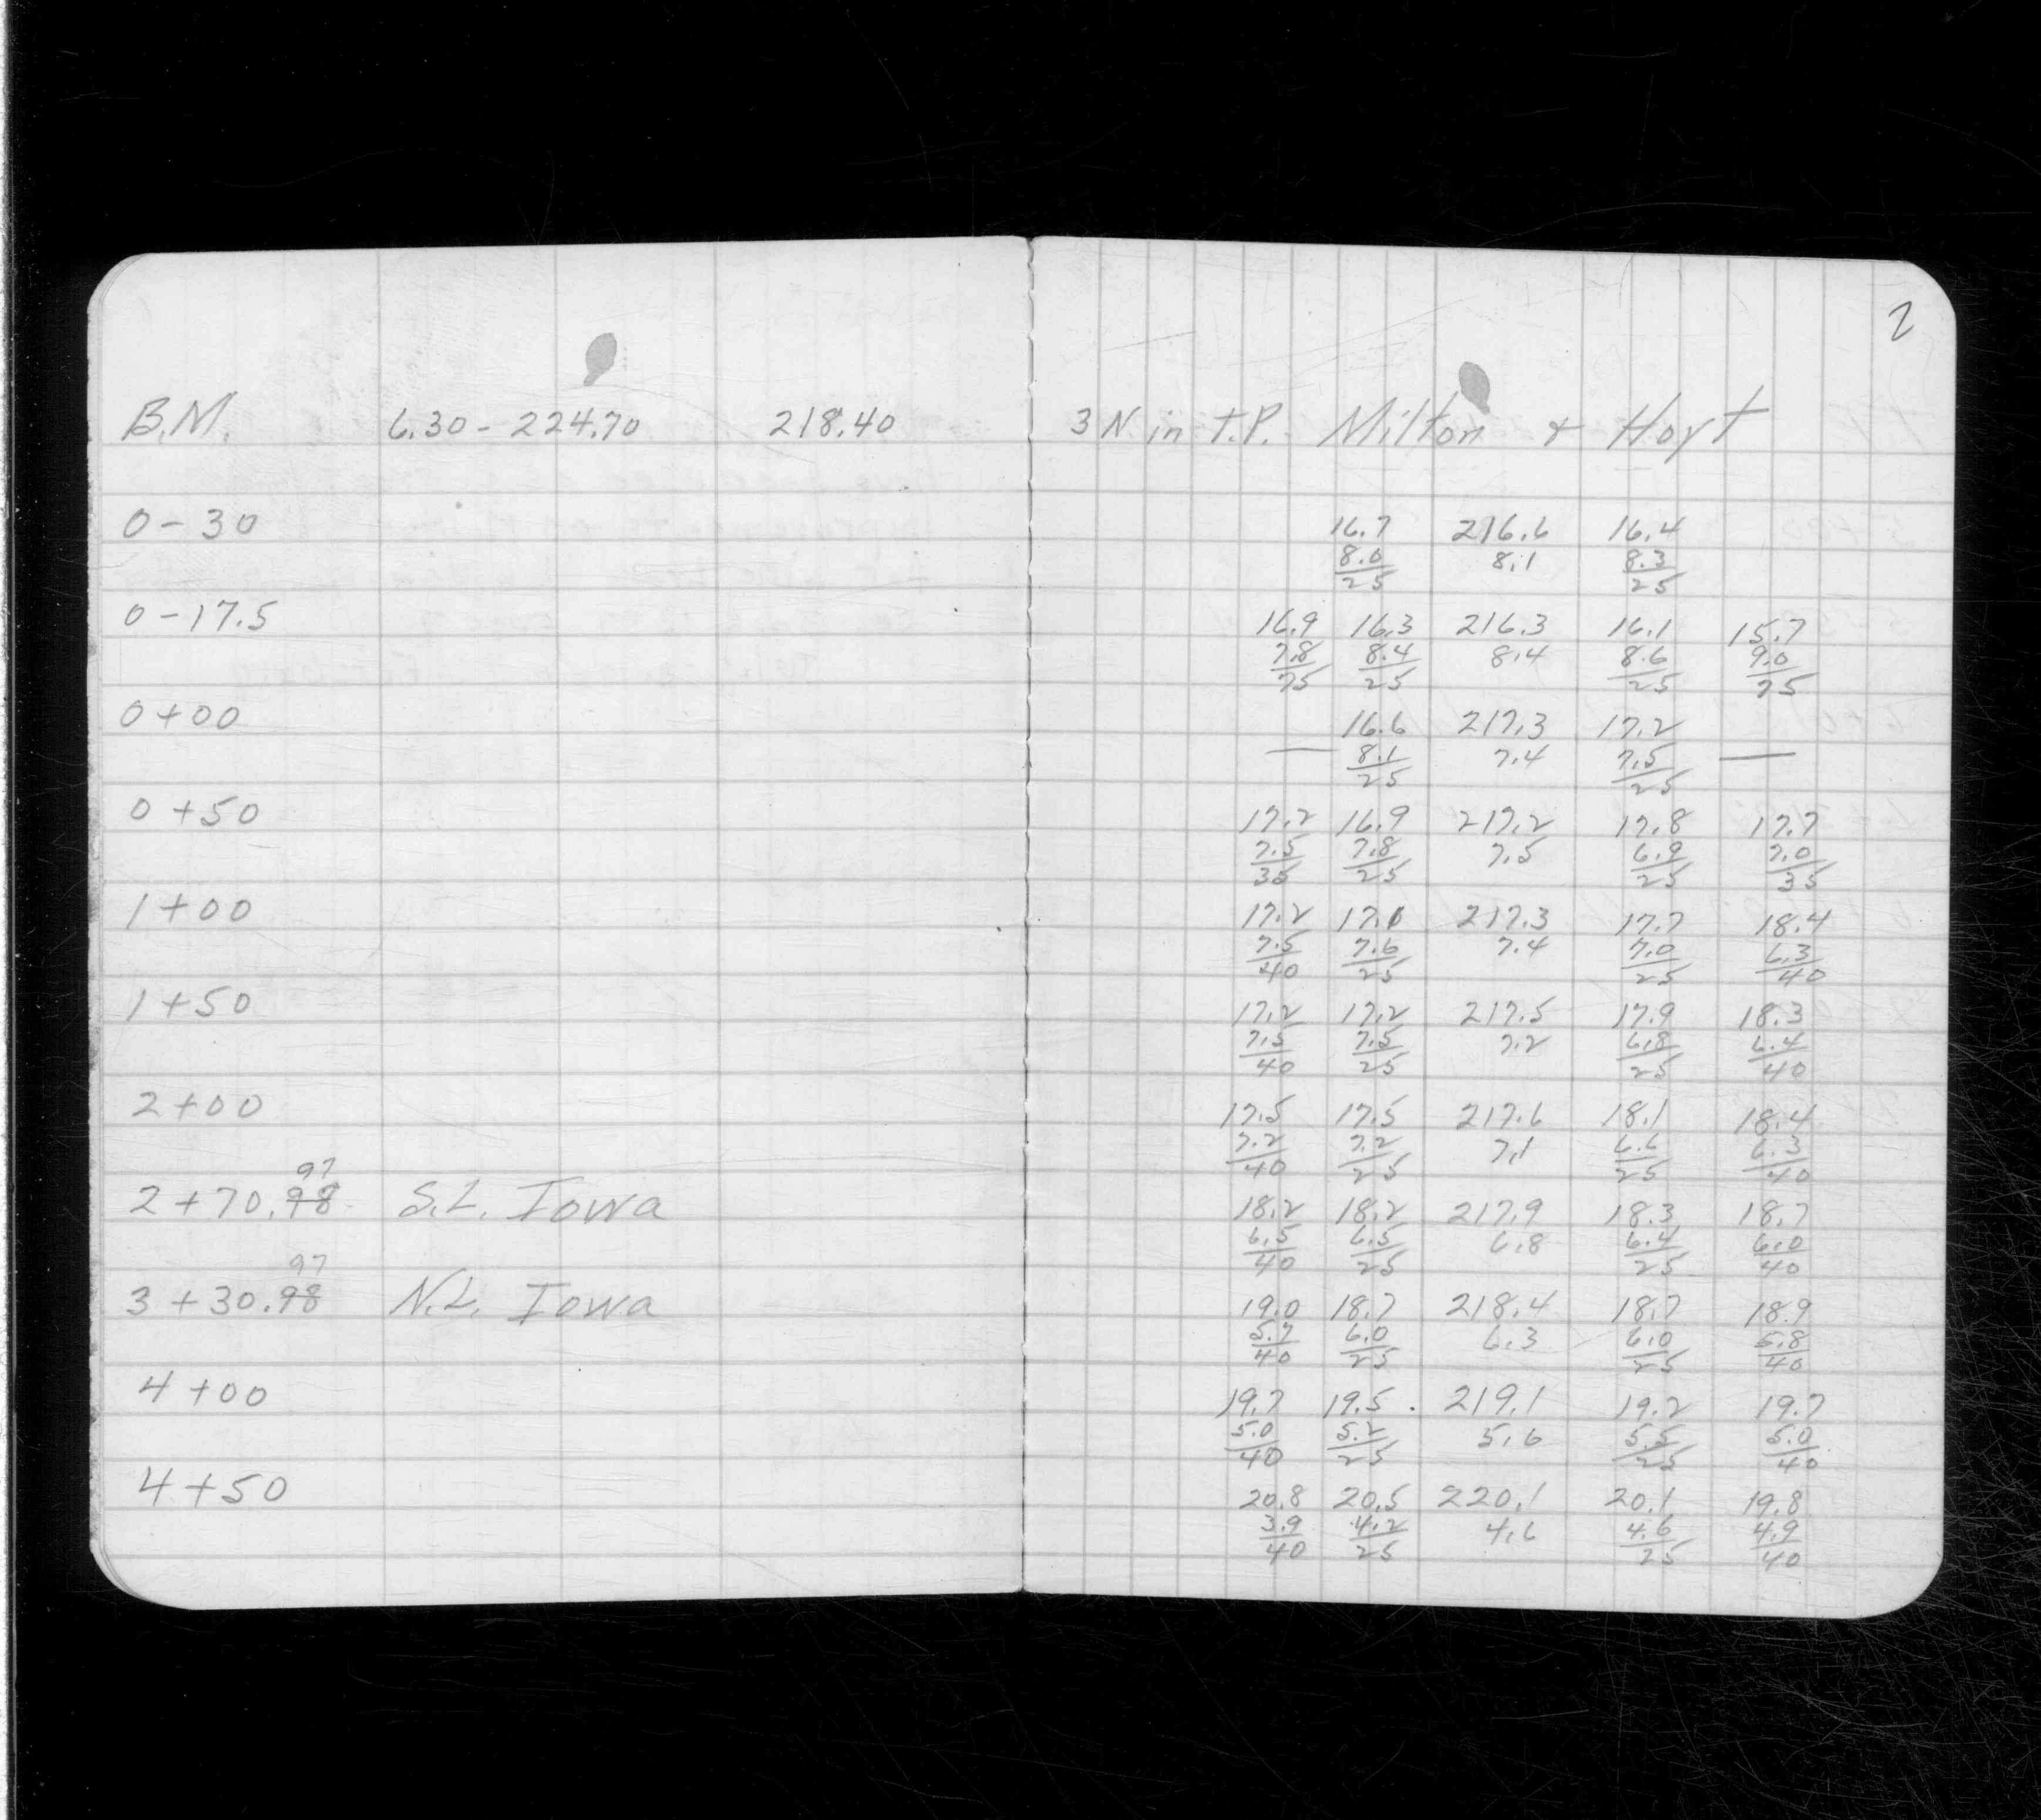 2
B.M. 6.30 - 224.70 218.40 3 N in T.P. Milton & Hoyt
0 - 30 16.7 216.6 16.4
8.0 8.1 8.3
25 25
0 - 17.5 16.9 16.3 216.3 16.1 15.7
7.8 8.4 8.4 8.6 9.0
75 25 25 75
0 + 00 16.6 217.3 17.2
— 8.1 7.4 7.5 —
25 25
0 + 50 17.2 16.9 217.2 17.8 17.7
7.5 7.8 7.5 6.9 7.0
35 25 25 35
1 + 00 17.2 17.1 217.3 17.7 18.4
7.5 7.6 7.4 7.0 6.3
40 25 25 40
1 + 50 17.2 17.2 217.5 17.9 18.3
7.5 7.5 7.2 6.8 6.4
40 25 25 40
2 + 00 17.5 17.5 217.6 18.1 18.4
7.2 7.2 7.1 6.6 6.3
40 25 25 40
97
2 + 70.98 S.L. Iowa 18.2 18.2 217.9 18.3 18.7
6.5 6.5 6.8 6.4 6.0
40 25 25 40
97
3 + 30.98 N.L. Iowa 19.0 18.7 218.4 18.7 18.9
5.7 6.0 6.3 6.0 5.8
40 25 25 40
4 + 00 19.7 19.5 219.1 19.2 19.7
5.0 5.2 5.6 5.5 5.0
40 25 25 40
4 + 50 20.8 20.5 220.1 20.1 19.8
3.9 4.2 4.6 4.6 4.9
40 25 25 40